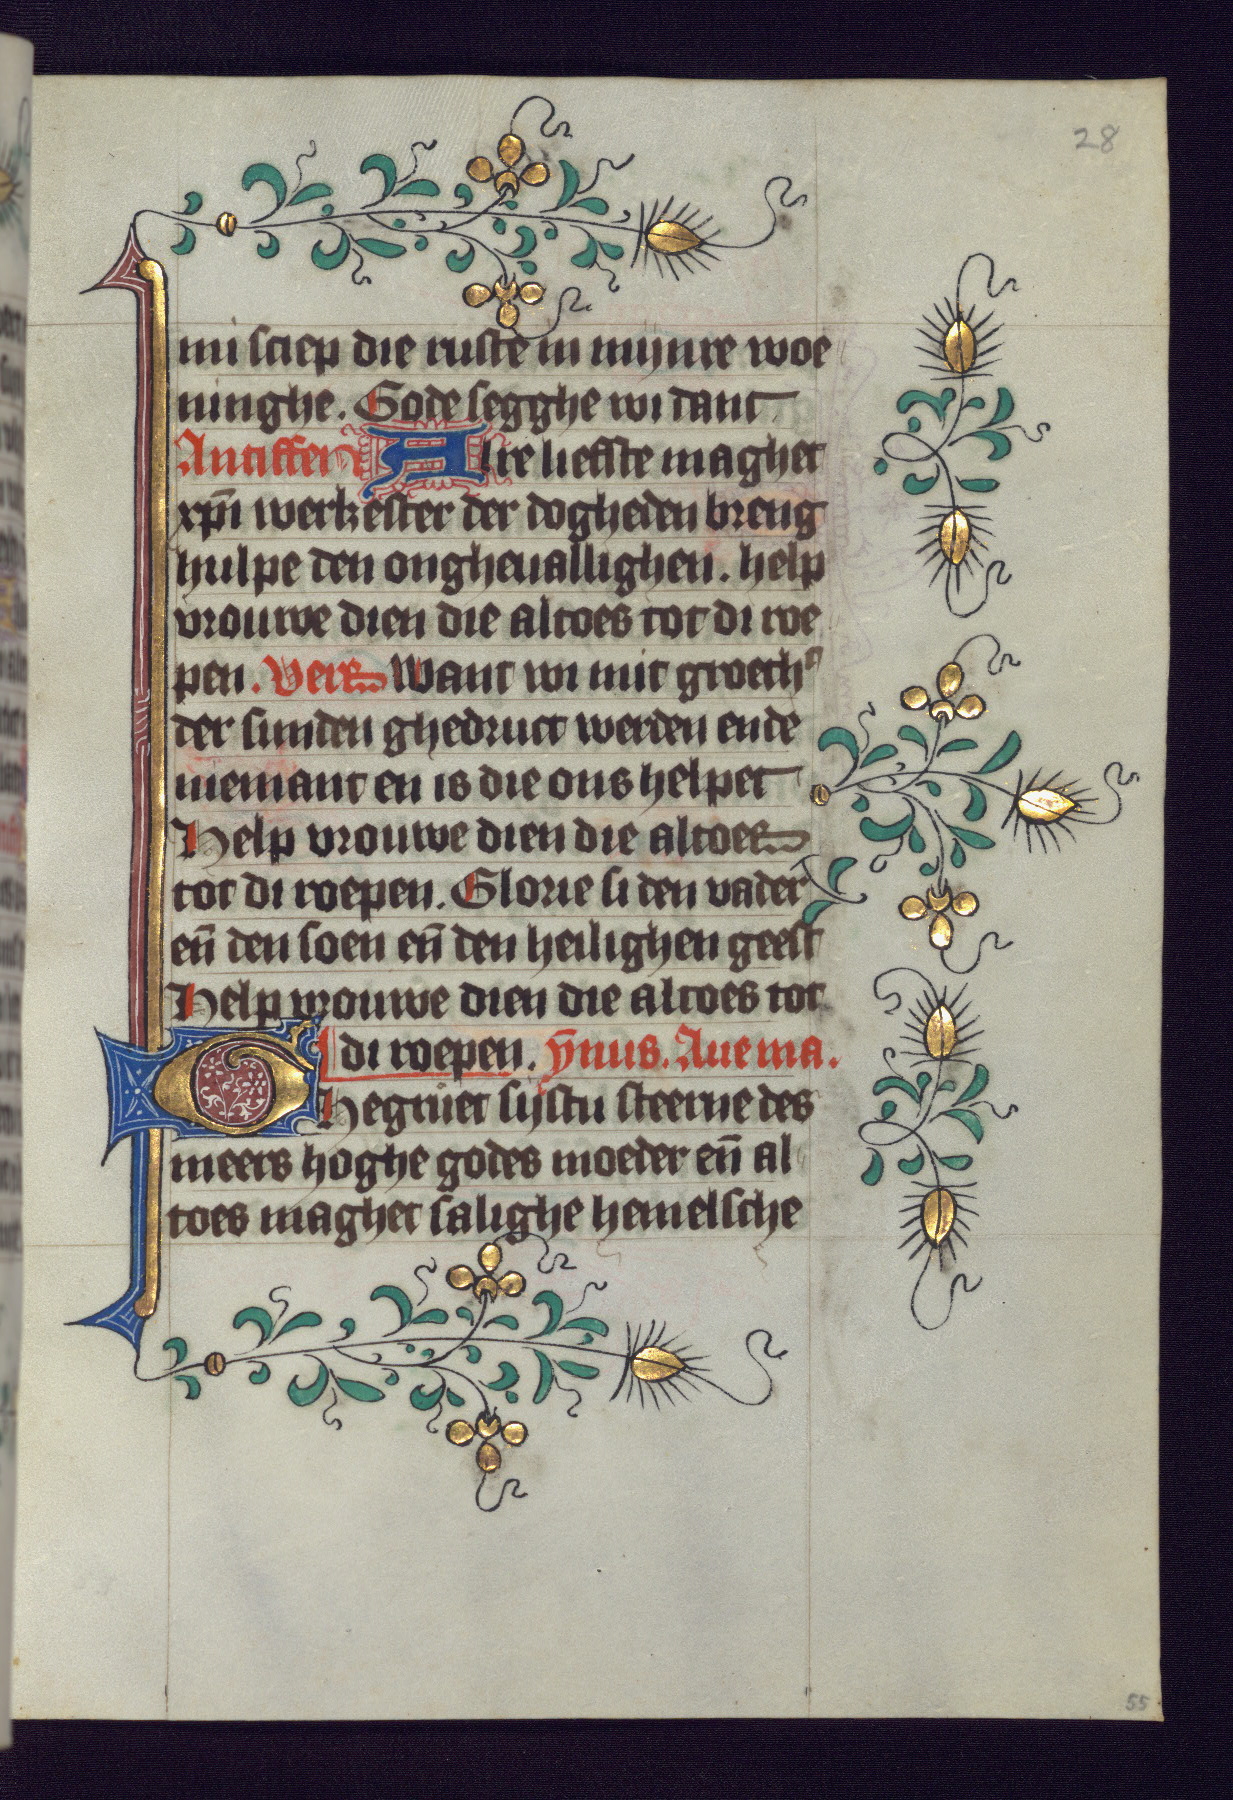 28
mi sciep die ruste in mijnre woe
ninghe. Gode segghe wi danc
Antiffen Alre liefste maghet
xp̄i werkester der dogheden breng
hulpe den ongheuallighen. help
vrouwe dien die altoes tot di roe
pen. Vers Want wi mit groeth
der sunden ghedruct werden ende
niemant en is die ons helpet
Help vrouwe dien die altoes
tot di roepen. Glorie si den vader
en̄ den soen en̄ den heilighen geest
Help vrouwe dien die altoes tot
di roepen. ȳnus. Aue ma.
Ghegruet sijstu steerne des
meers hoghe godes moeder en̄ al
toes maghet salighe hemelsche
55